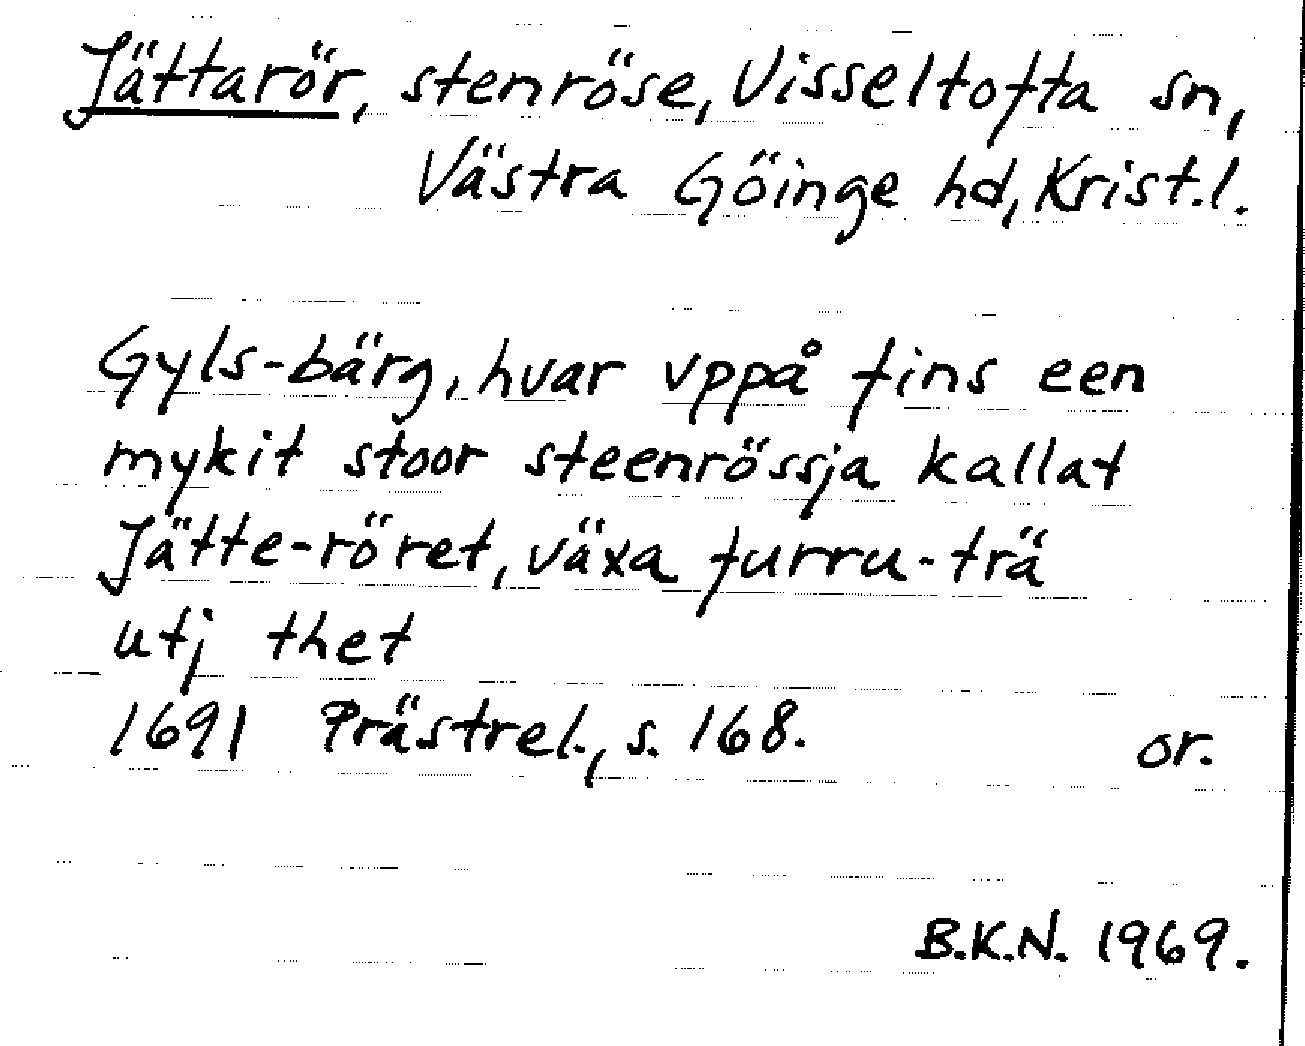 Jättarör, stenröse, Visseltofta sn,
Västra Göinge hd, Krist.l.
Gyls-bärg, hvar vppå fins een
mykit stoor steenrössja kallat
Jätte-röret, växa furru-trä
utj thet
1691 Prästrel., s. 168. or.
B.K.N. 1969.